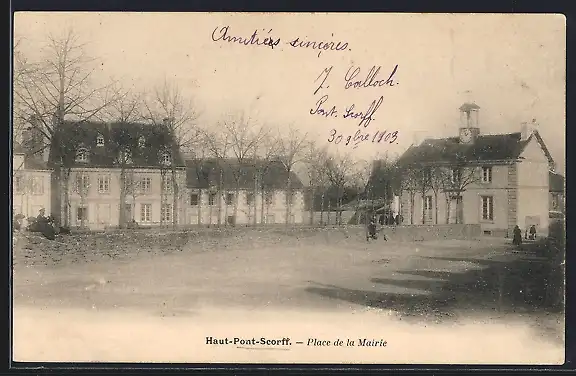 Amitiés sincères.
J. Calloch.
Pont-Scorff
30 9bre 1903
Haut-Pont-Scorff. — Place de la Mairie